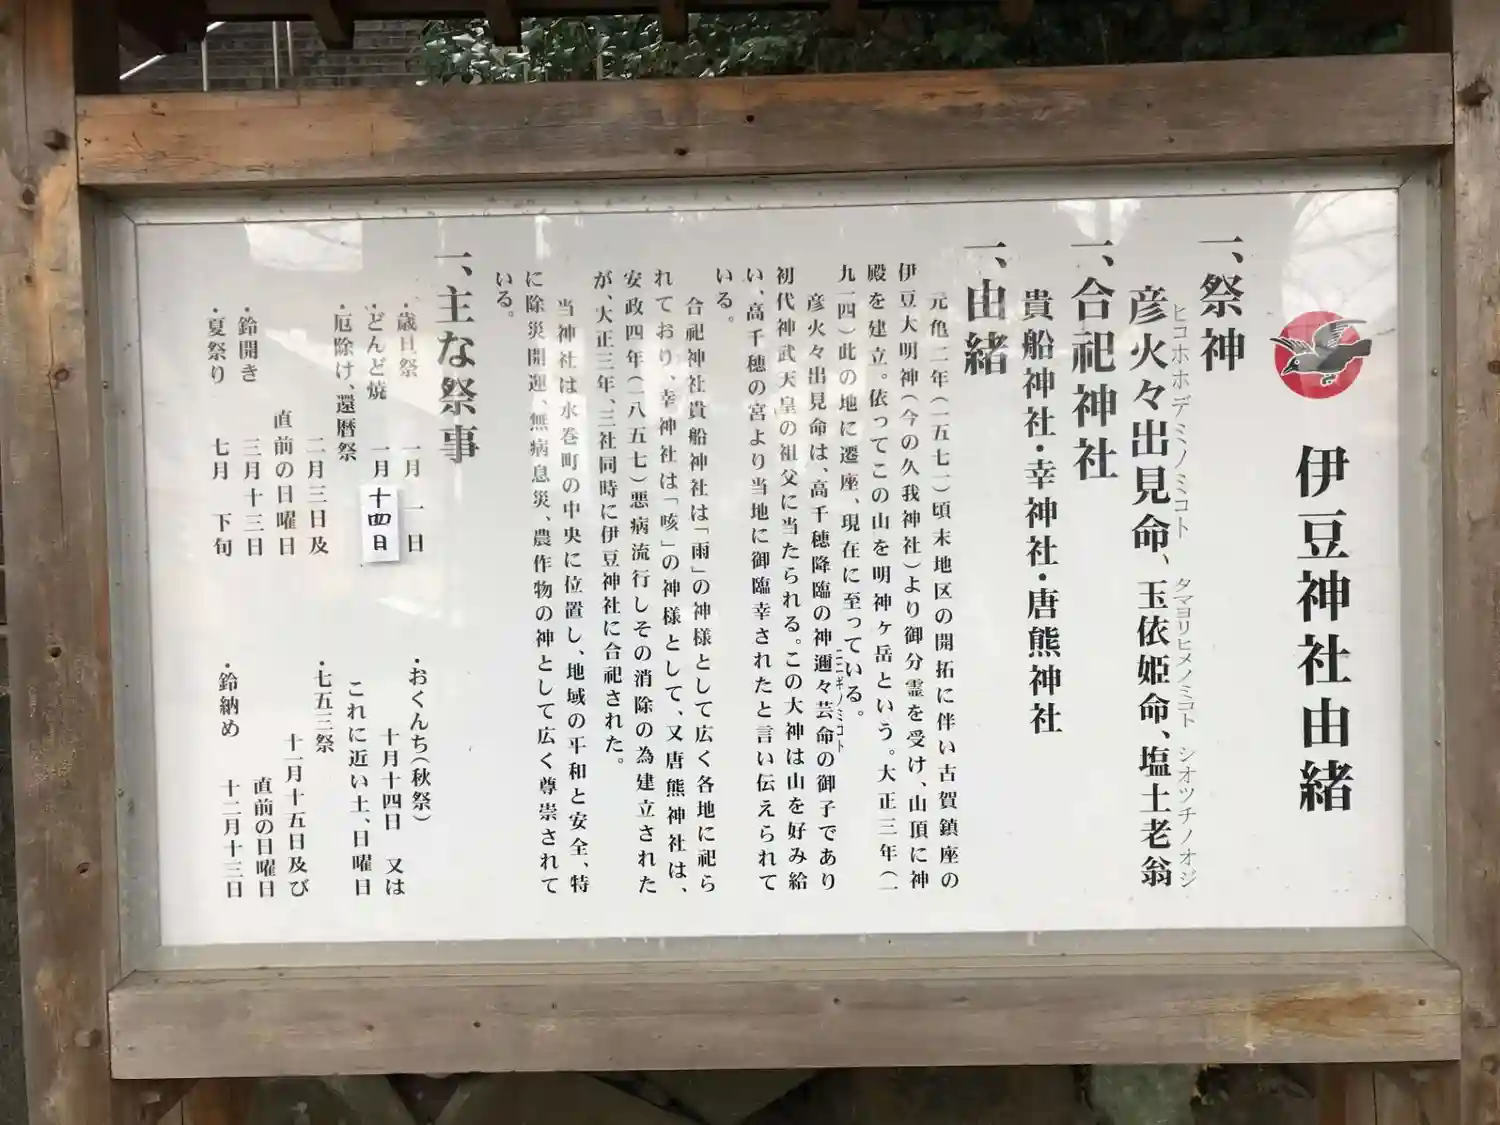 伊豆神社由緒
一、祭神
ヒコホホデミノミコト タマヨリヒメノミコト シオツチノオジ
彦火々出見命、玉依姫命、塩土老翁
一、合祀神社
貴船神社・幸神社・唐熊神社
一、由緒
元亀二年(一五七一)頃末地区の開拓に伴い古賀鎮座の
伊豆大明神(今の久我神社)より御分霊を受け、山頂に神
殿を建立。依ってこの山を明神ヶ岳という。大正三年(一
九一四)此の地に遷座、現在に至っている。
ニニギノミコト
彦火々出見命は、高千穂降臨の神邇々芸命の御子であり
初代神武天皇の祖父に当たられる。この大神は山を好み給
い、高千穂の宮より当地に御臨幸されたと言い伝えられて
いる。
合祀神社貴船神社は「雨」の神様として広く各地に祀ら
れており、幸神社は「咳」の神様として、又唐熊神社は、
安政四年(一八五七)悪病流行しその消除の為建立された
が、大正三年、三社同時に伊豆神社に合祀された。
当神社は水巻町の中央に位置し、地域の平和と安全、特
に除災開運、無病息災、農作物の神として広く尊崇されて
いる。
一、主な祭事
・歳旦祭 一月 一日
・どんど焼 一月十四日
・厄除け、還暦祭
二月三日及
直前の日曜日
・鈴開き 三月十三日
・夏祭り 七月 下旬
・おくんち(秋祭)
十月十四日 又は
これに近い土、日曜日
・七五三祭
十一月十五日及び
直前の日曜日
・鈴納め 十二月十三日